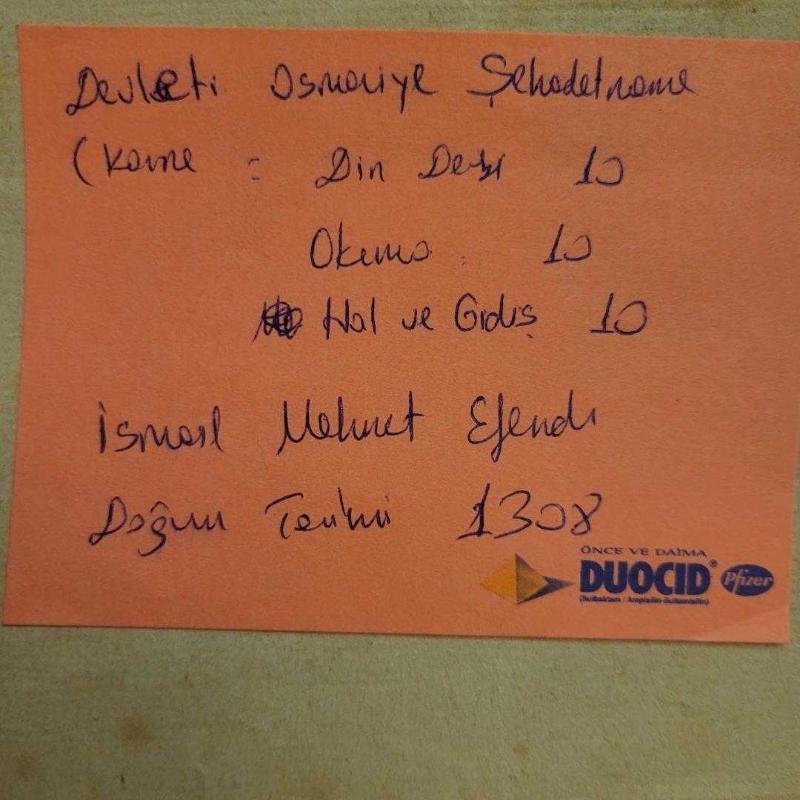 Devleti Osmaniye Şehadetname
(Karne : Din Dersi 10
Okuma : 10
Hal ve Gidiş 10
İsmail Mehmet Efendi
Doğum Tarihi 1308
ÖNCE VE DAİMA
DUOCID® Pfizer